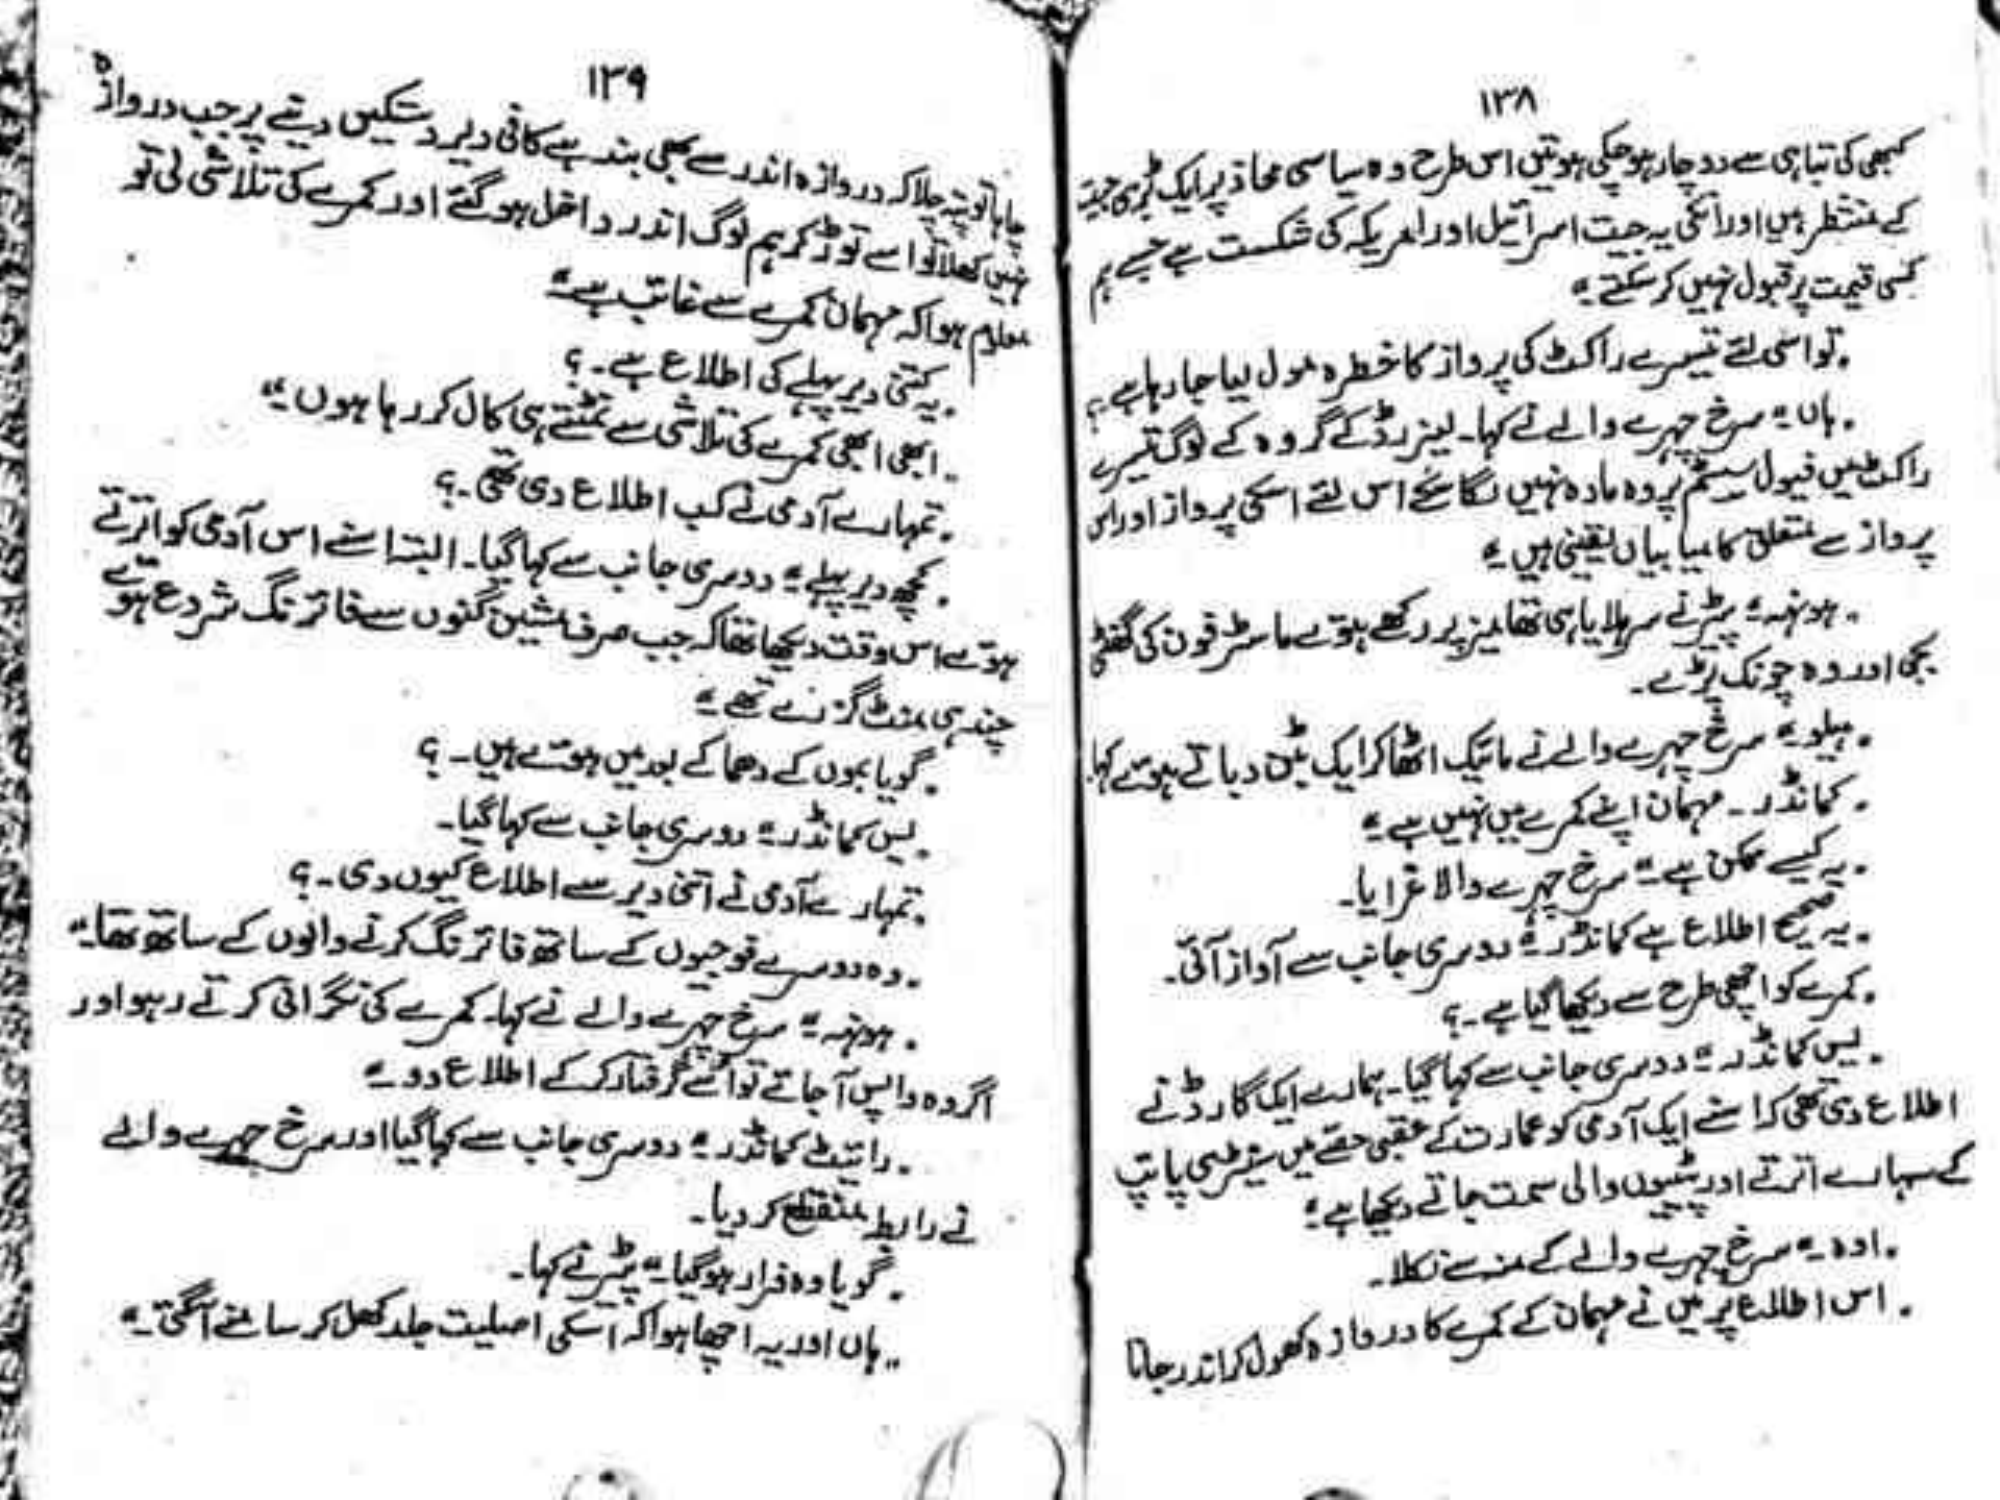 ۱۳۸
کبھی کی تباہی سے دوچار ہو چکی ہوتیں اس طرح وہ سیاسی محاذ پر ایک بڑی جیت
کے منتظر ہیں اور انکی یہ جیت اسرائیل اور امریکہ کی شکست ہے جسے ہم
کسی قیمت پر قبول نہیں کر سکتے۔"
"تو اسی لئے تیسرے راکٹ کی پرواز کا خطرہ مول لیا جا رہا ہے؟
"ہاں۔" سرخ چہرے والے نے کہا۔ لیزرڈ کے گروہ کے لوگ تیسرے
راکٹ میں فیول سیسٹم پر وہ مادہ نہیں لگا سکے اس لئے اسکی پرواز اور اس
پرواز سے متعلق کامیابیاں یقینی ہیں۔"
"ہونہہ۔" پیٹر نے سر ہلایا ہی تھا میز پر رکھے ہوتے ماسٹر فون کی گھنٹی
بجی اور وہ چونک پڑے۔
"ہیلو۔" سرخ چہرے والے نے مائیک اٹھا کر ایک بٹن دباتے ہوتے کہا
"کمانڈر۔ مہمان اپنے کمرے میں نہیں ہے۔"
"یہ کیسے ممکن ہے۔" سرخ چہرے والا غرایا۔
"یہ صحیح اطلاع ہے کمانڈر۔" دوسری جانب سے آواز آئی۔
"کمرے کو اچھی طرح سے دیکھا گیا ہے۔؟
"یس کمانڈر۔" دوسری جانب سے کہا گیا۔ ہمارے ایک گارڈ نے
اطلاع دی تھی کہ اسنے ایک آدمی کو عمارت کے عقبی حصے میں پائپ
کے سہارے اترتے اور والی سمت جاتے دیکھا ہے۔"
"اوہ۔" سرخ چہرے والے کے منہ سے نکلا۔
"اس اطلاع پر میں نے مہمان کے کمرے کا دروازہ کھول کر اندر جانا
۱۳۹
چاہا تو پتہ چلا کہ دروازہ اندر سے بھی بند ہے کافی دیر دستکیں دینے پر جب دروازہ
نہیں کھلا تو اسے توڑ کر ہم لوگ اندر داخل ہو گئے اور کمرے کی تلاشی لی تو
معلوم ہوا کہ مہمان کمرے سے غائب ہے۔"
"یہ کتنی دیر پہلے کی اطلاع ہے۔؟
"ابھی ابھی کمرے کی تلاشی سے نمٹتے ہی کال کر رہا ہوں۔"
"تمہارے آدمی نے کب اطلاع دی تھی۔؟
"کچھ دیر پہلے۔" دوسری جانب سے کہا گیا۔ البتہ اسنے اس آدمی کو اترتے
ہوتے اس وقت دیکھا تھا کہ جب صرف مشین گنوں سے فائرنگ شروع ہوتے
چند ہی منٹ گزرے تھے۔"
"گویا بموں کے دھماکے بعد میں ہوتے ہیں۔؟
"یس کمانڈر۔" دوسری جانب سے کہا گیا۔
"تمہارے آدمی نے اتنی دیر سے اطلاع کیوں دی۔؟
"وہ دوسرے فوجیوں کے ساتھ فائرنگ کرنے والوں کے ساتھ تھا۔"
"ہونہہ۔" سرخ چہرے والے نے کہا۔ کمرے کی نگرانی کرتے رہو اور
اگر وہ واپس آ جاتے تو اسے گرفتار کر کے اطلاع دو۔"
"رائیٹ کمانڈر۔" دوسری جانب سے کہا گیا اور سرخ چہرے والے
نے رابطہ منقطع کر دیا۔
"گویا وہ فرار ہو گیا۔" پیٹر نے کہا۔
"ہاں اور یہ اچھا ہوا کہ اسکی اصلیت جلد کھل کر سامنے آ گئی۔"